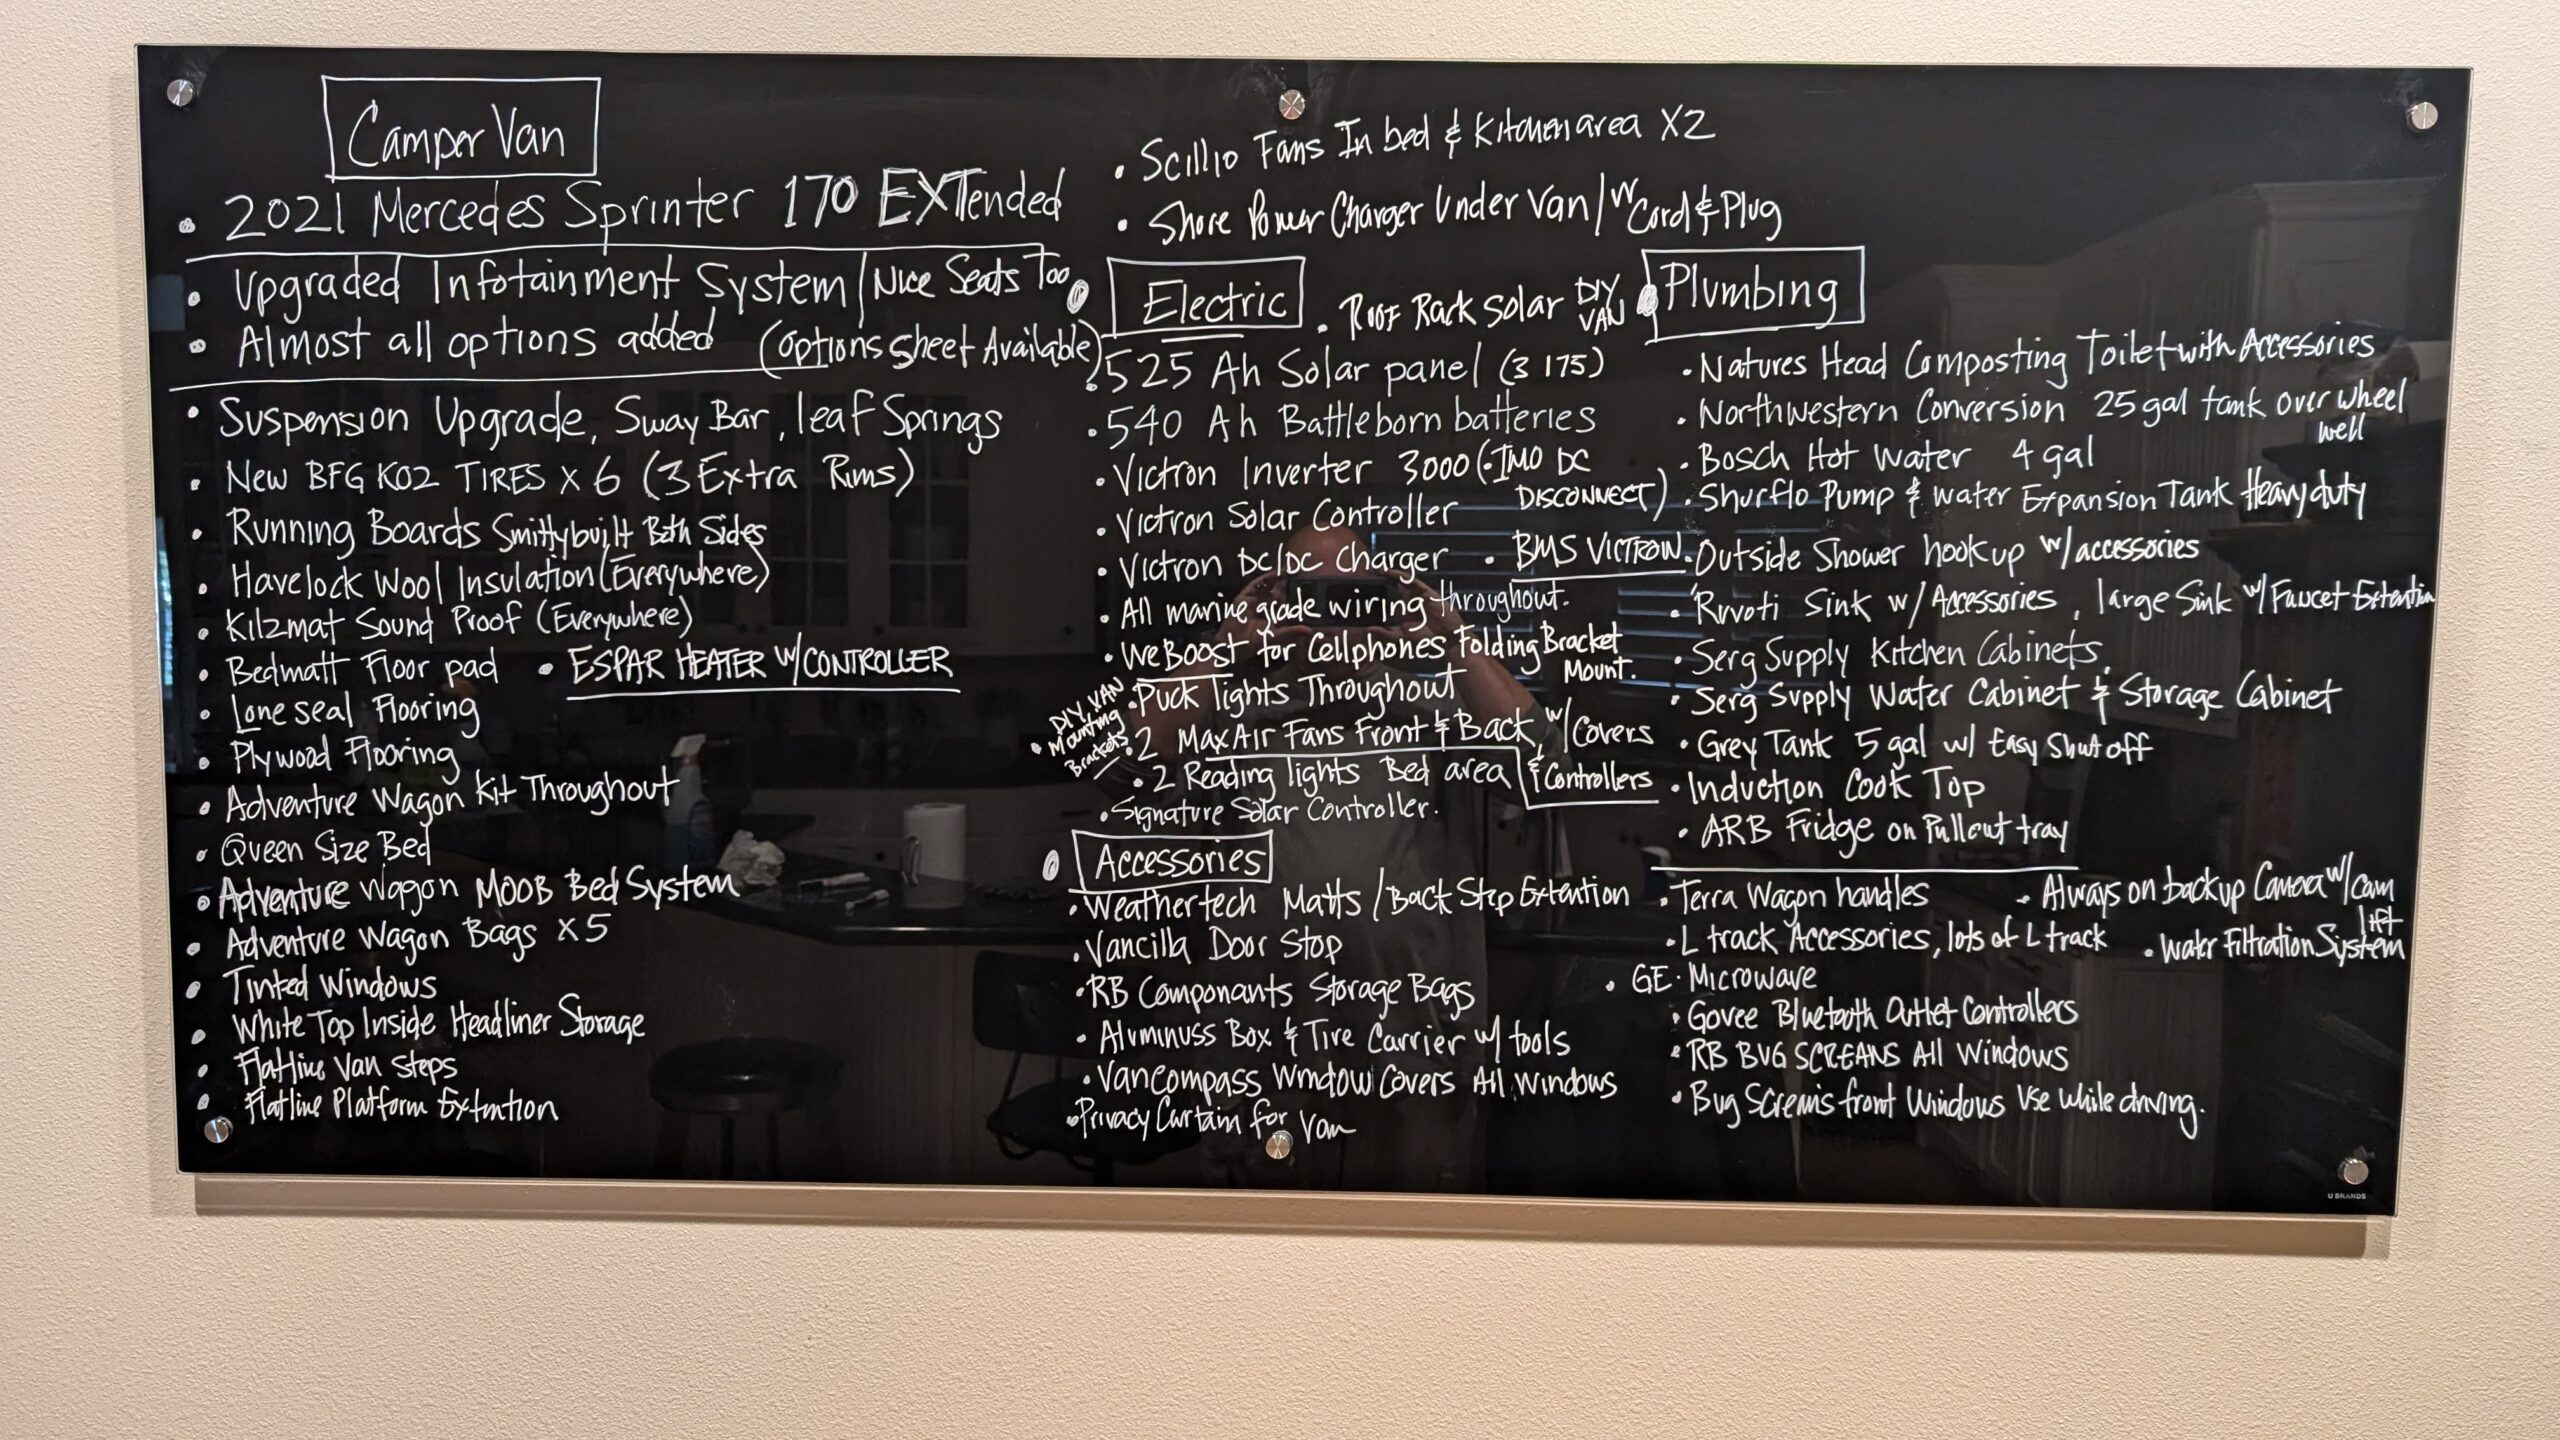 Camper Van
• 2021 Mercedes Sprinter 170 EXTended
• Upgraded Infotainment System / Nice Seats Too
• Almost all options added (Options sheet Available)
• Suspension Upgrade, Sway Bar, leaf Springs
• New BFG KO2 TIRES x 6 (3 Extra Rims)
• Running Boards Smittybuilt Both Sides
• Havelock Wool Insulation (Everywhere)
• Kilzmat Sound Proof (Everywhere)
• Bedmatt Floor pad • ESPAR HEATER W/CONTROLLER
• Loneseal Flooring
• Plywood Flooring
• Adventure Wagon Kit Throughout
• Queen Size Bed
• Adventure Wagon MOOB Bed System
• Adventure Wagon Bags x5
• Tinted Windows
• White Top Inside Headliner Storage
• Flatline Van Steps
• Flatline Platform Extention
• Scillio Fans In bed & Kitchen area X2
• Shore Power Charger Under Van / w Cord & Plug
Electric
• Roof Rack Solar DIY VAN
• 525 Ah Solar panel (3 175)
• 540 Ah Battleborn batteries
• Victron Inverter 3000 (• IMO DC DISCONNECT)
• Victron Solar Controller
• Victron DC/DC Charger • BMS VICTRON
• All marine grade wiring throughout.
• WeBoost for Cellphones Folding Bracket Mount.
• Puck lights Throughout
• DIY VAN Mounting Brackets
• 2 MaxAir Fans Front & Back w/Covers & Controllers
• 2 Reading lights Bed area
• Signature Solar Controller.
Accessories
• Weathertech Matts / Back Step Extention
• Vancilla Door Stop
• RB Componants Storage Bags
• Aluminuss Box & Tire Carrier w/ tools
• Vancompass Window Covers All Windows
• Privacy Curtain for Van
Plumbing
• Natures Head Composting Toilet with Accessories
• Northwestern Conversion 25 gal tank over wheel well
• Bosch Hot Water 4 gal
• Shurflo Pump & Water Expansion Tank Heavy duty
• Outside Shower hookup w/accessories
• Ruvoti Sink w/ Accessories, large Sink w/ Faucet Extention
• Serg Supply Kitchen Cabinets,
• Serg Supply Water Cabinet & Storage Cabinet
• Grey Tank 5 gal w/ Easy Shut off
• Induction Cook Top
• ARB Fridge on Pullout tray
• Terra Wagon handles • Always on backup Camera w/cam lift
• L track Accessories, lots of L track • Water Filtration System
• GE • Microwave
• Govee Bluetooth Outlet Controllers
• RB BUG SCREANS All Windows
• Bug Screans front Windows Use while driving.
U BRANDS